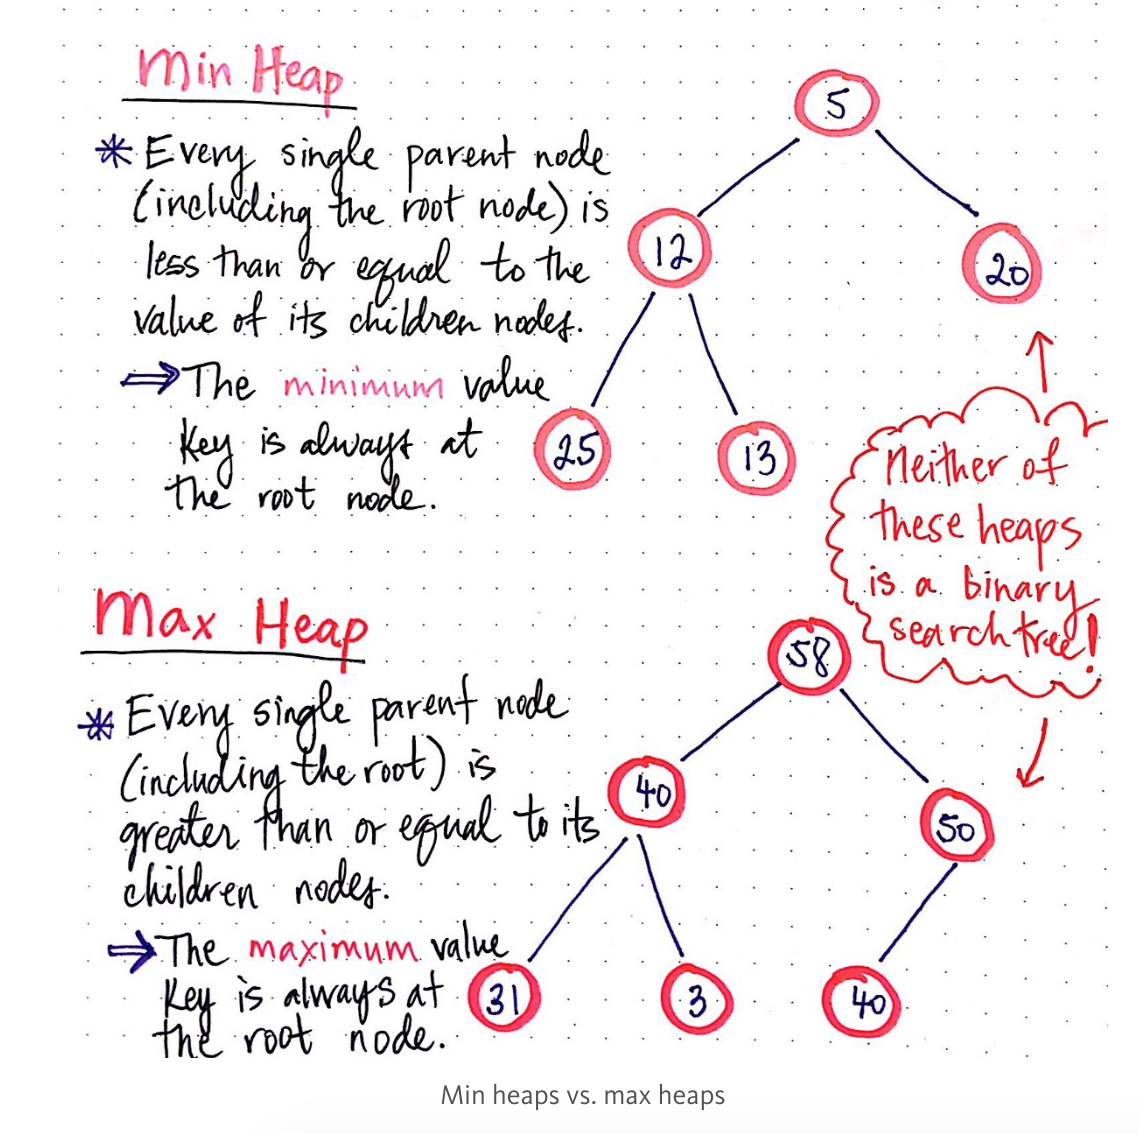 Min Heap
* Every single parent node
(including the root node) is
less than or equal to the
value of its children nodes.
⇒ The minimum value
key is always at
the root node.
5
12
20
25
13
Neither of
these heaps
is a binary
search tree!
Max Heap
* Every single parent node
(including the root) is
greater than or equal to its
children nodes.
⇒ The maximum value
key is always at
the root node.
58
40
50
31
3
40
Min heaps vs. max heaps